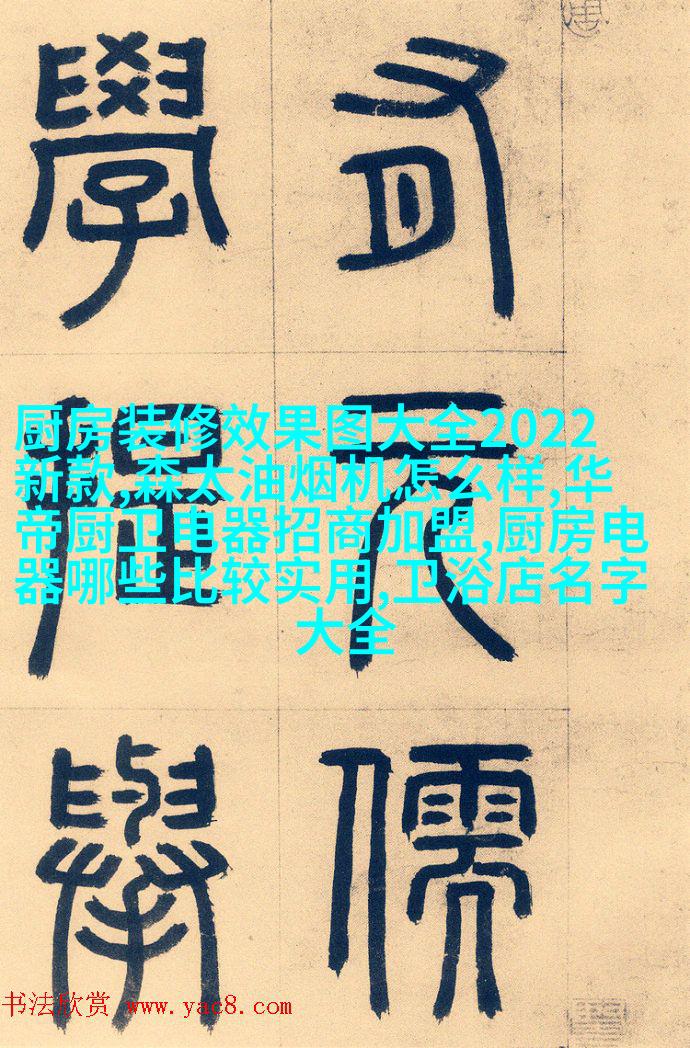 有元儒
學提舉
厨房装修效果图大全2022
新款,森太油烟机怎么样,华
帝厨卫电器招商加盟,厨房电
器哪些比较实用,卫浴店名字
大全
书法欣赏 www.yac8.com